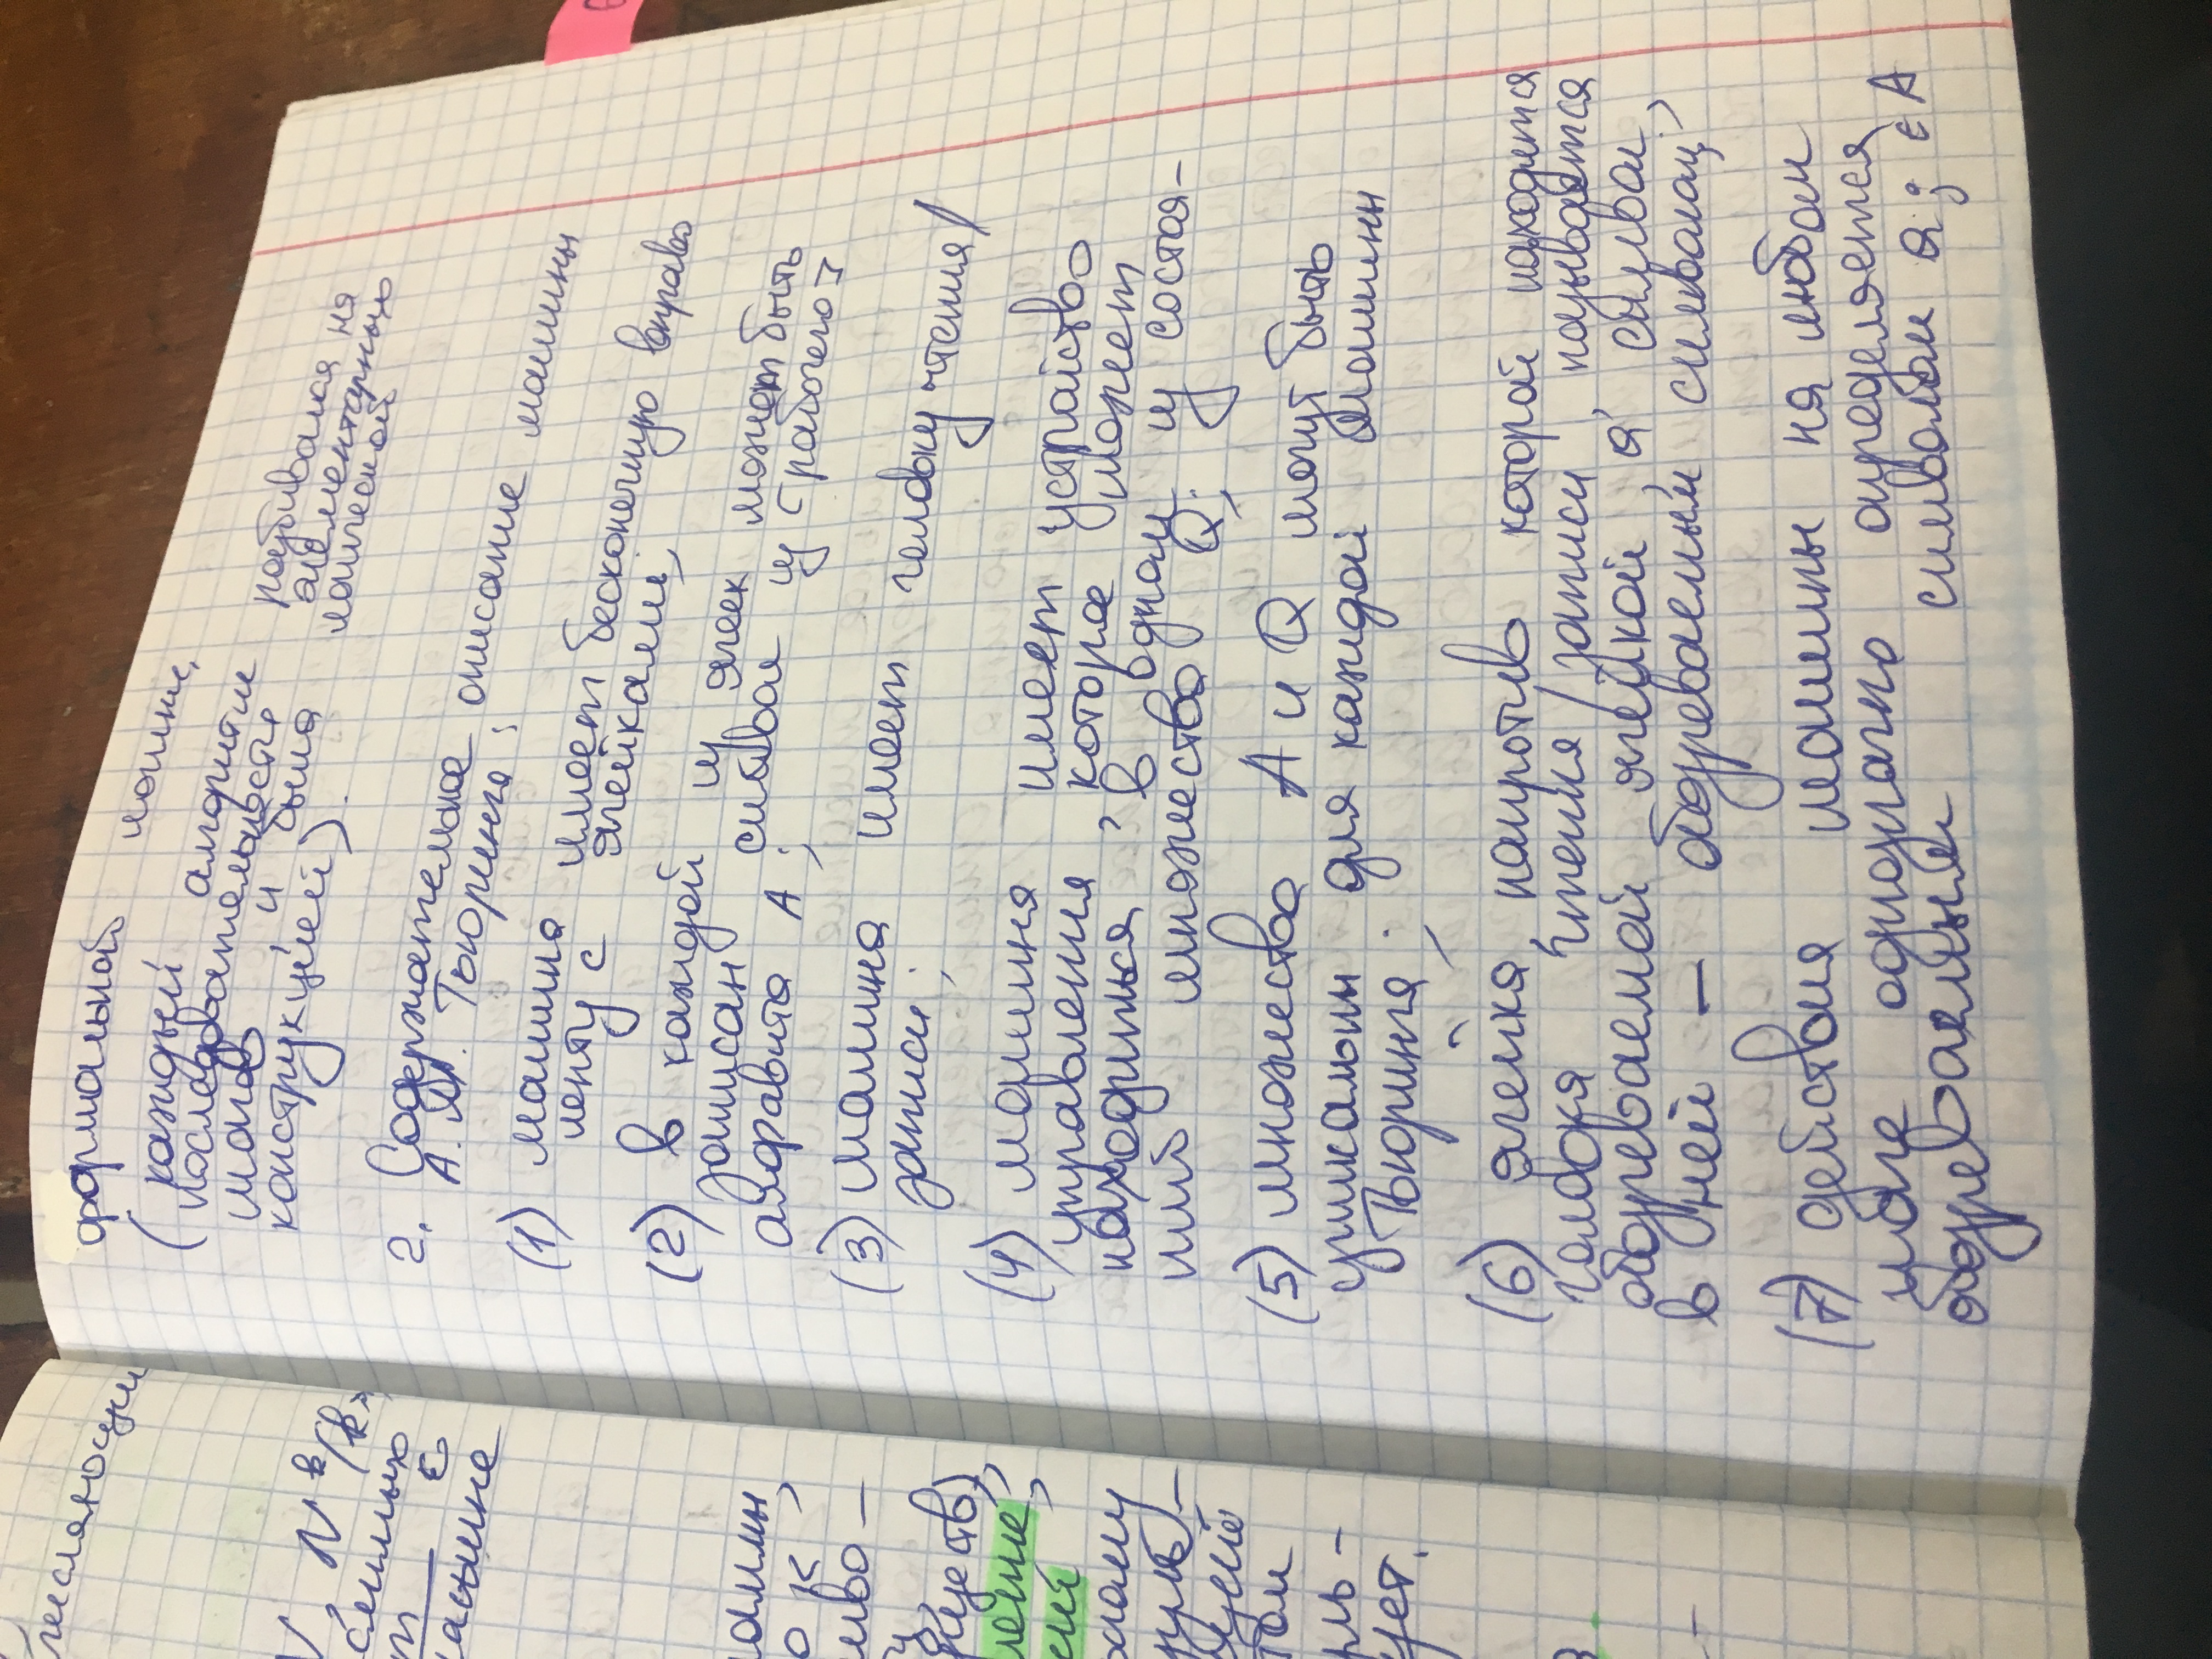 числяющи
N, N^k (k>
слимых
m ∈
машине
раммы,
о к
мво-
ществ),
том
рль-
ует.
формальной логике.
(каждый алгоритм разбивался на
последовательность элементарных
шагов, и была логической
конструкцией).
2. Содержательное описание машины
А. М. Тьюринга:
(1) машина имеет бесконечную вправо
ленту с ячейками;
(2) в каждой из ячеек может быть
записан символ из [рабочего]
алфавита A;
(3) машина имеет головку чтения/
записи;
(4) машина имеет устройство
управления, которое может
находиться в одном из состоя-
ний множества Q;
(5) множества A и Q могут быть
уникальны для каждой машины
Тьюринга;
(6) ячейка, напротив которой находится
головка чтения/записи, называется
обозреваемой ячейкой, а символ,
в ней — обозреваемым символом;
(7) действия машины на любом
шаге однозначно определяется
обозреваемым символом a_j ∈ A